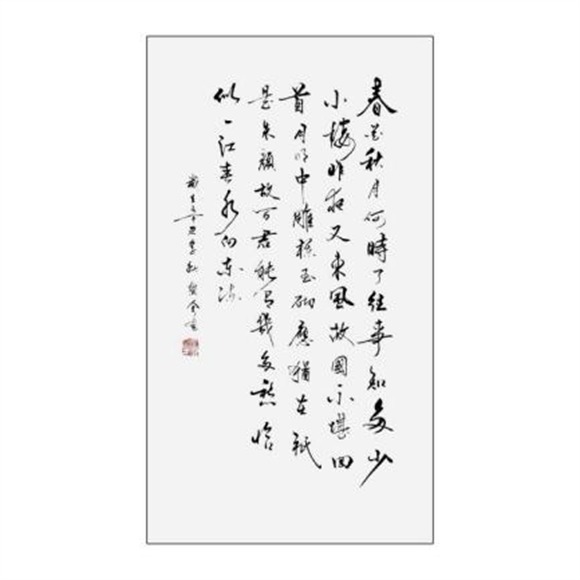 春花秋月何時了往事知多少
小樓昨夜又東風故國不堪回
首月明中雕欄玉砌應猶在祇
是朱顏改問君能有幾多愁恰
似一江春水向東流